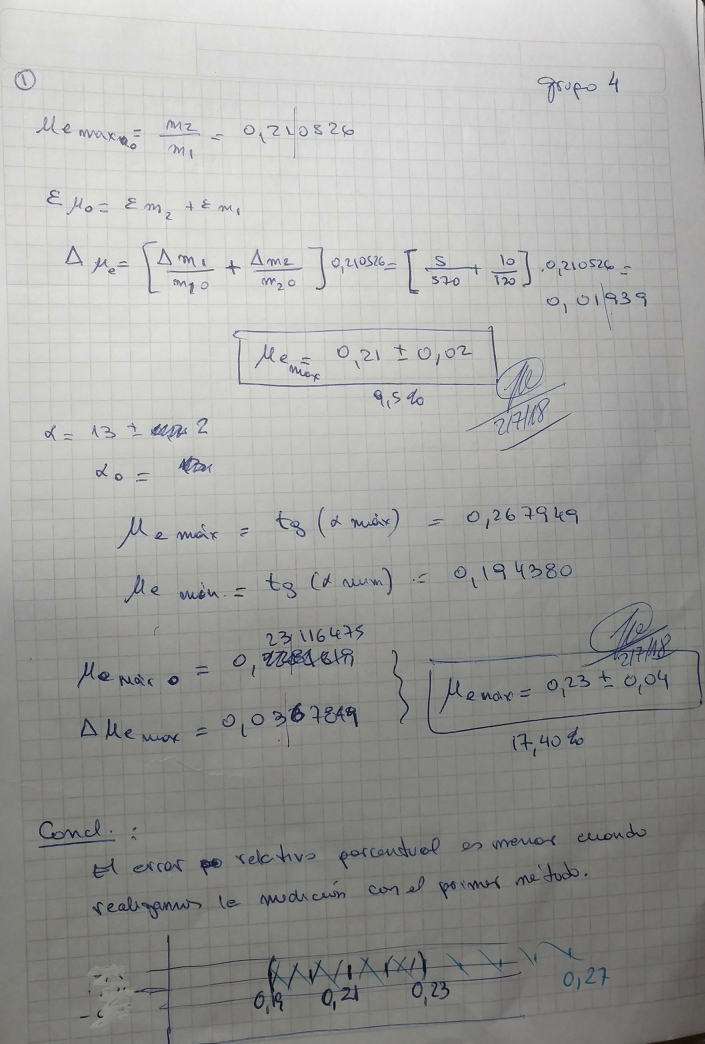 ①
grupo 4
μe max₀ = m2/m1 = 0,210526
εμ₀ = εm₂ + εm₁
Δμe = [Δm1/m10 + Δm2/m20] 0,210526 = [5/570 + 10/120] . 0,210526 =
0,01939
μe max = 0,21 ± 0,02
9,5%
2/7/18
α = 13 ± 2
α₀ =
μe máx = tg (α máx) = 0,267949
μe = tg (α) = 0,194380
23116475
μe máx 0 = 0,
2/7/18
Δμe max = 0,0367849
μe max = 0,23 ± 0,04
17,40%
Concl. :
El error relativo porcentual es menor cuando
realizamos la medición con el primer método.
0,19 0,21 0,23 0,27